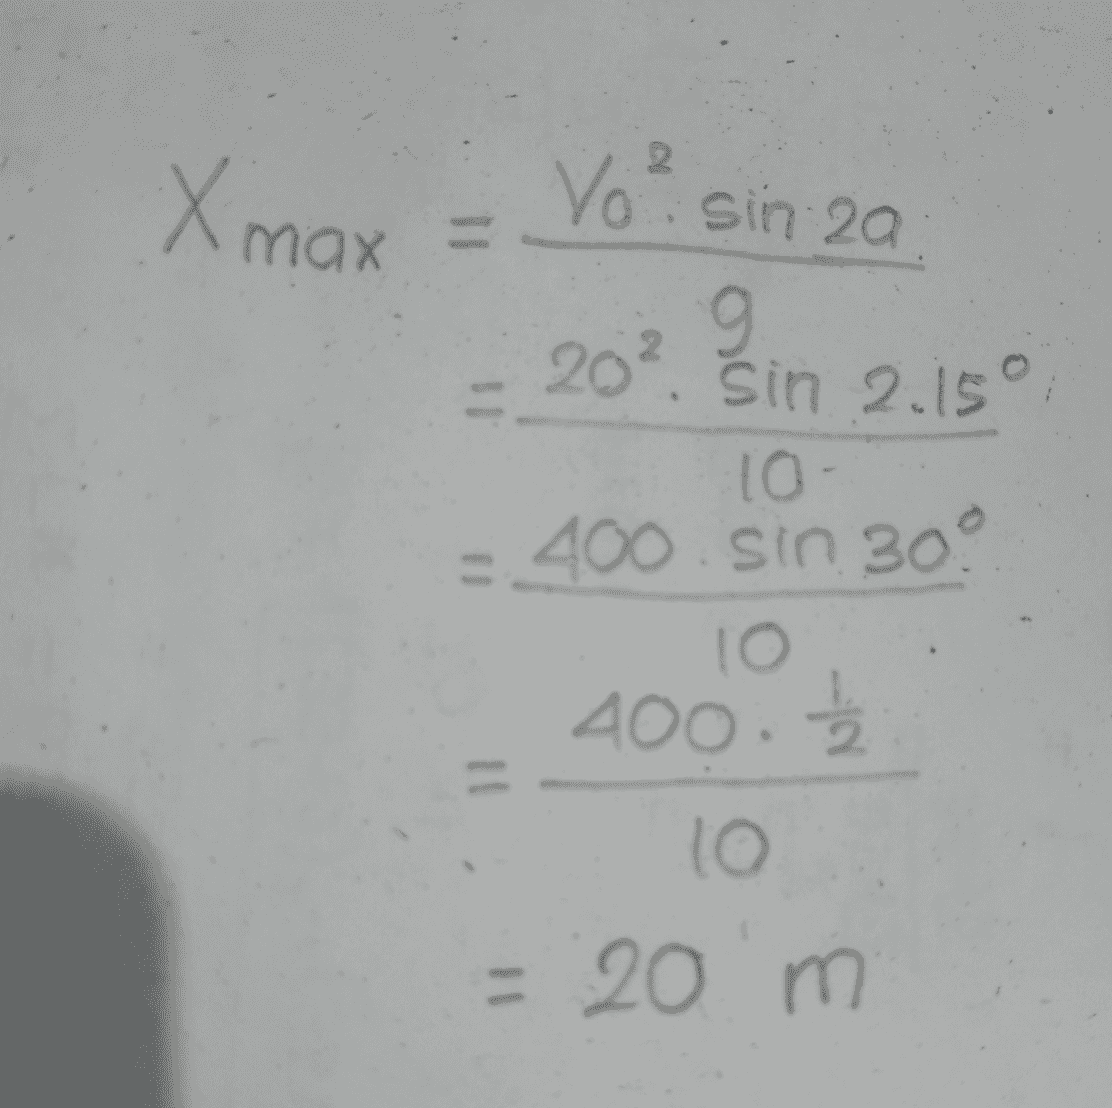 X max = Vo² . sin 2a / g
= 20² . sin 2.15° / 10
= 400 . sin 30° / 10
= 400 . 1/2 / 10
= 20 m